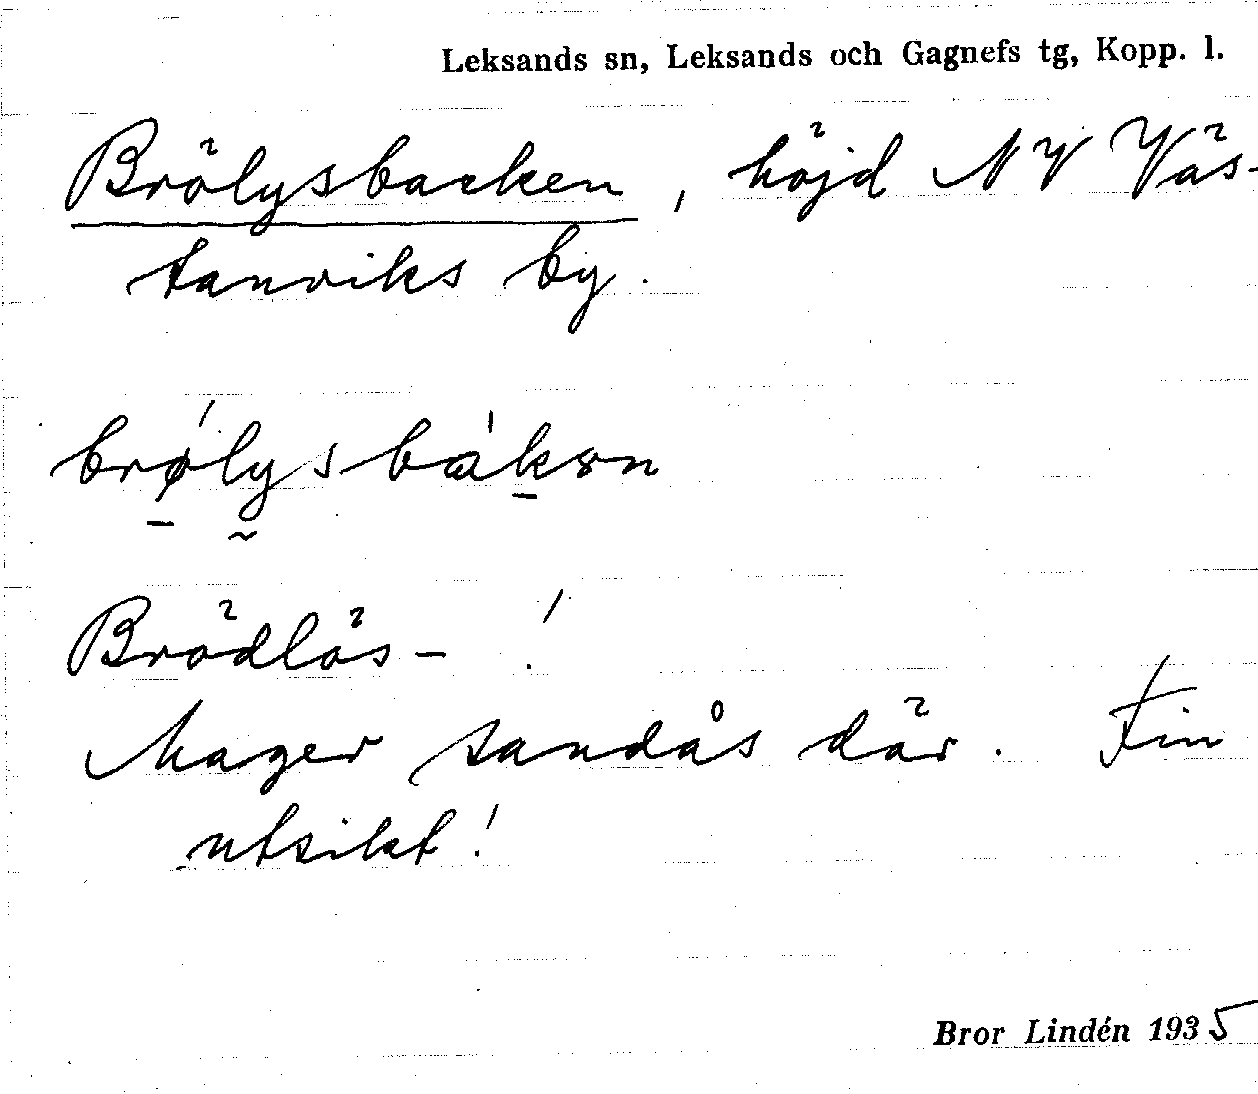 Leksands sn, Leksands och Gagnefs tg, Kopp. l.
Brölysbacken, höjd NV Väs-
tanviks by.
brǿ̠ly̰sbák̠ən
Brödlös- !
Mager sandås där. Fin
utsikt!
Bror Lindén 1935